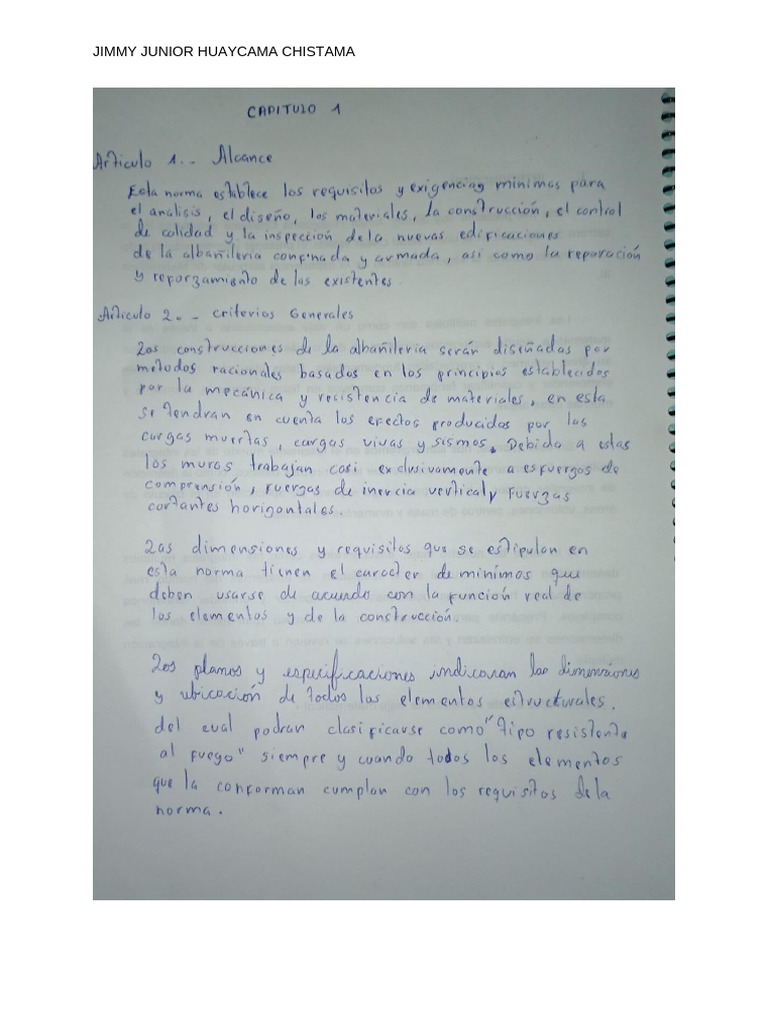 JIMMY JUNIOR HUAYCAMA CHISTAMA
CAPITULO 1
Articulo 1.- Alcance
Esta norma establece los requisitos y exigencias minimas para
el análisis, el diseño, los materiales, la construcción, el control
de calidad y la inspección de la nuevas edificaciones
de la albañileria confinada y armada, asi como la reparación
y reporzamiento de las existentes
Articulo 2.- criterios Generales
Las construcciones de la albañileria serán diseñadas por
metodos racionales basados en los principios establecidos
por la mecánica y resistencia de materiales, en esta
se tendran en cuenta los efectos producidos por las
cargas muertas, cargas vivas y sismos. Debido a estas
los muros trabajan casi exclusivamente a esfuergos de
comprensión, fuergas de inercia vertical y fuerzas
cortantes horizontales.
Las dimensiones y requisitos que se estipulan en
esta norma tienen el caracter de minimos que
deben usarse de acuerdo con la función real de
los elementos y de la construcción.
Los planos y especificaciones indicaran las dimensiones
y ubicación de todos los elementos estructurales.
del cual podran clasificarse como "tipo resistente
al fuego" siempre y cuando todos los elementos
que la conforman cumplan con los requisitos de la
norma.